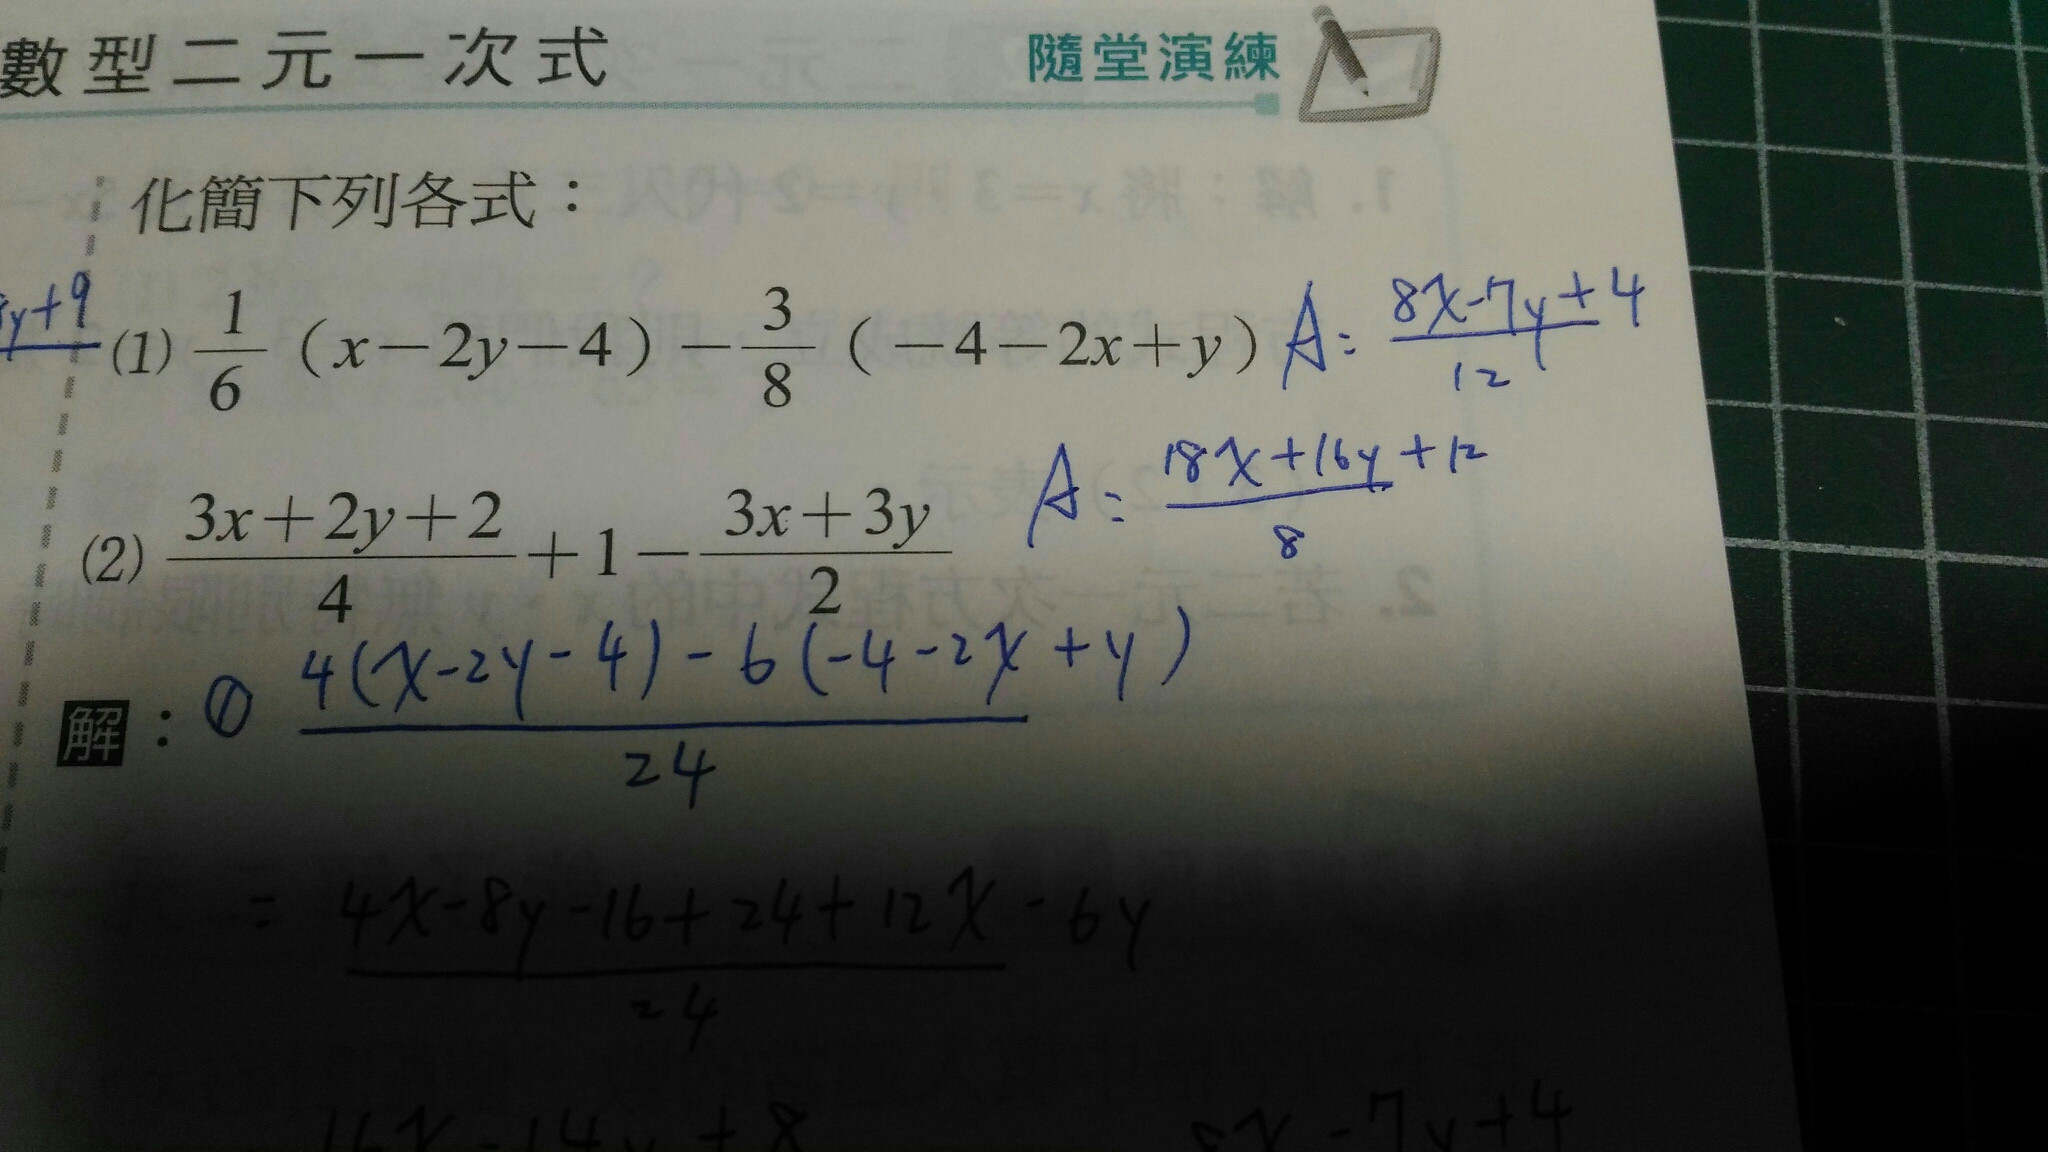 數型二元一次式 隨堂演練
化簡下列各式：
y+9
(1) 1/6 （x－2y－4）－3/8 （－4－2x＋y） A= 8x-7y+4/12
(2) 3x＋2y＋2/4＋1－3x＋3y/2 A= 18x+16y+12/8
解：① 4(x-2y-4)-6(-4-2x+y)/24
= 4x-8y-16+24+12x-6y/24
16x-14y+8 8x-7y+4